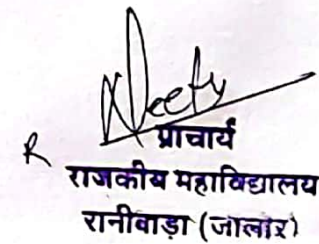 Neety
प्राचार्य
R
राजकीय महाविद्यालय
रानीवाड़ा (जालोर)